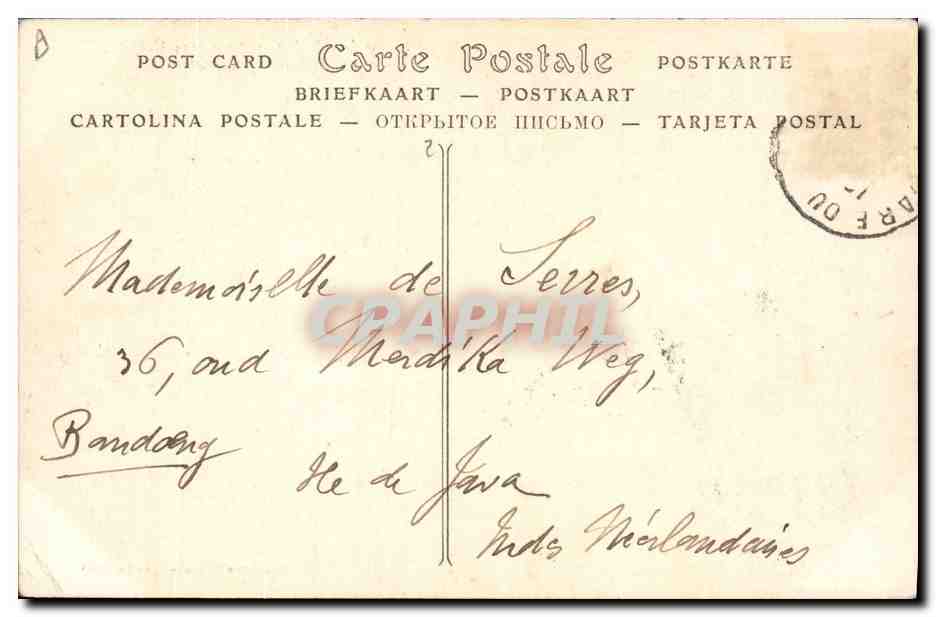 POST CARD Carte Postale POSTKARTE
BRIEFKAART — POSTKAART
CARTOLINA POSTALE — ОТКРЫТОЕ ПИСЬМО — TARJETA POSTAL
GARE DU
Mademoiselle de Serres,
CPRAPHIL
36, oud Merdika Weg,
Bandoeng
Ile de Java
Indes Néerlandaises